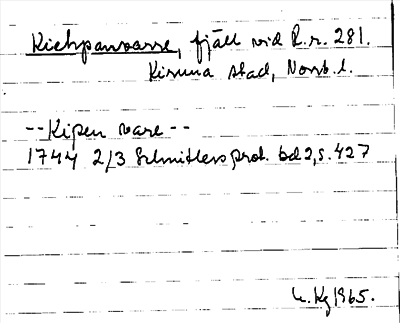 Kiehpanvarre, fjäll vid R.r. 281.
Kiruna stad, Norrb.l.
--Kipen vare--
1744 2/3 Schnitlers prot. bd 2, s. 427
K.Kg 1965.